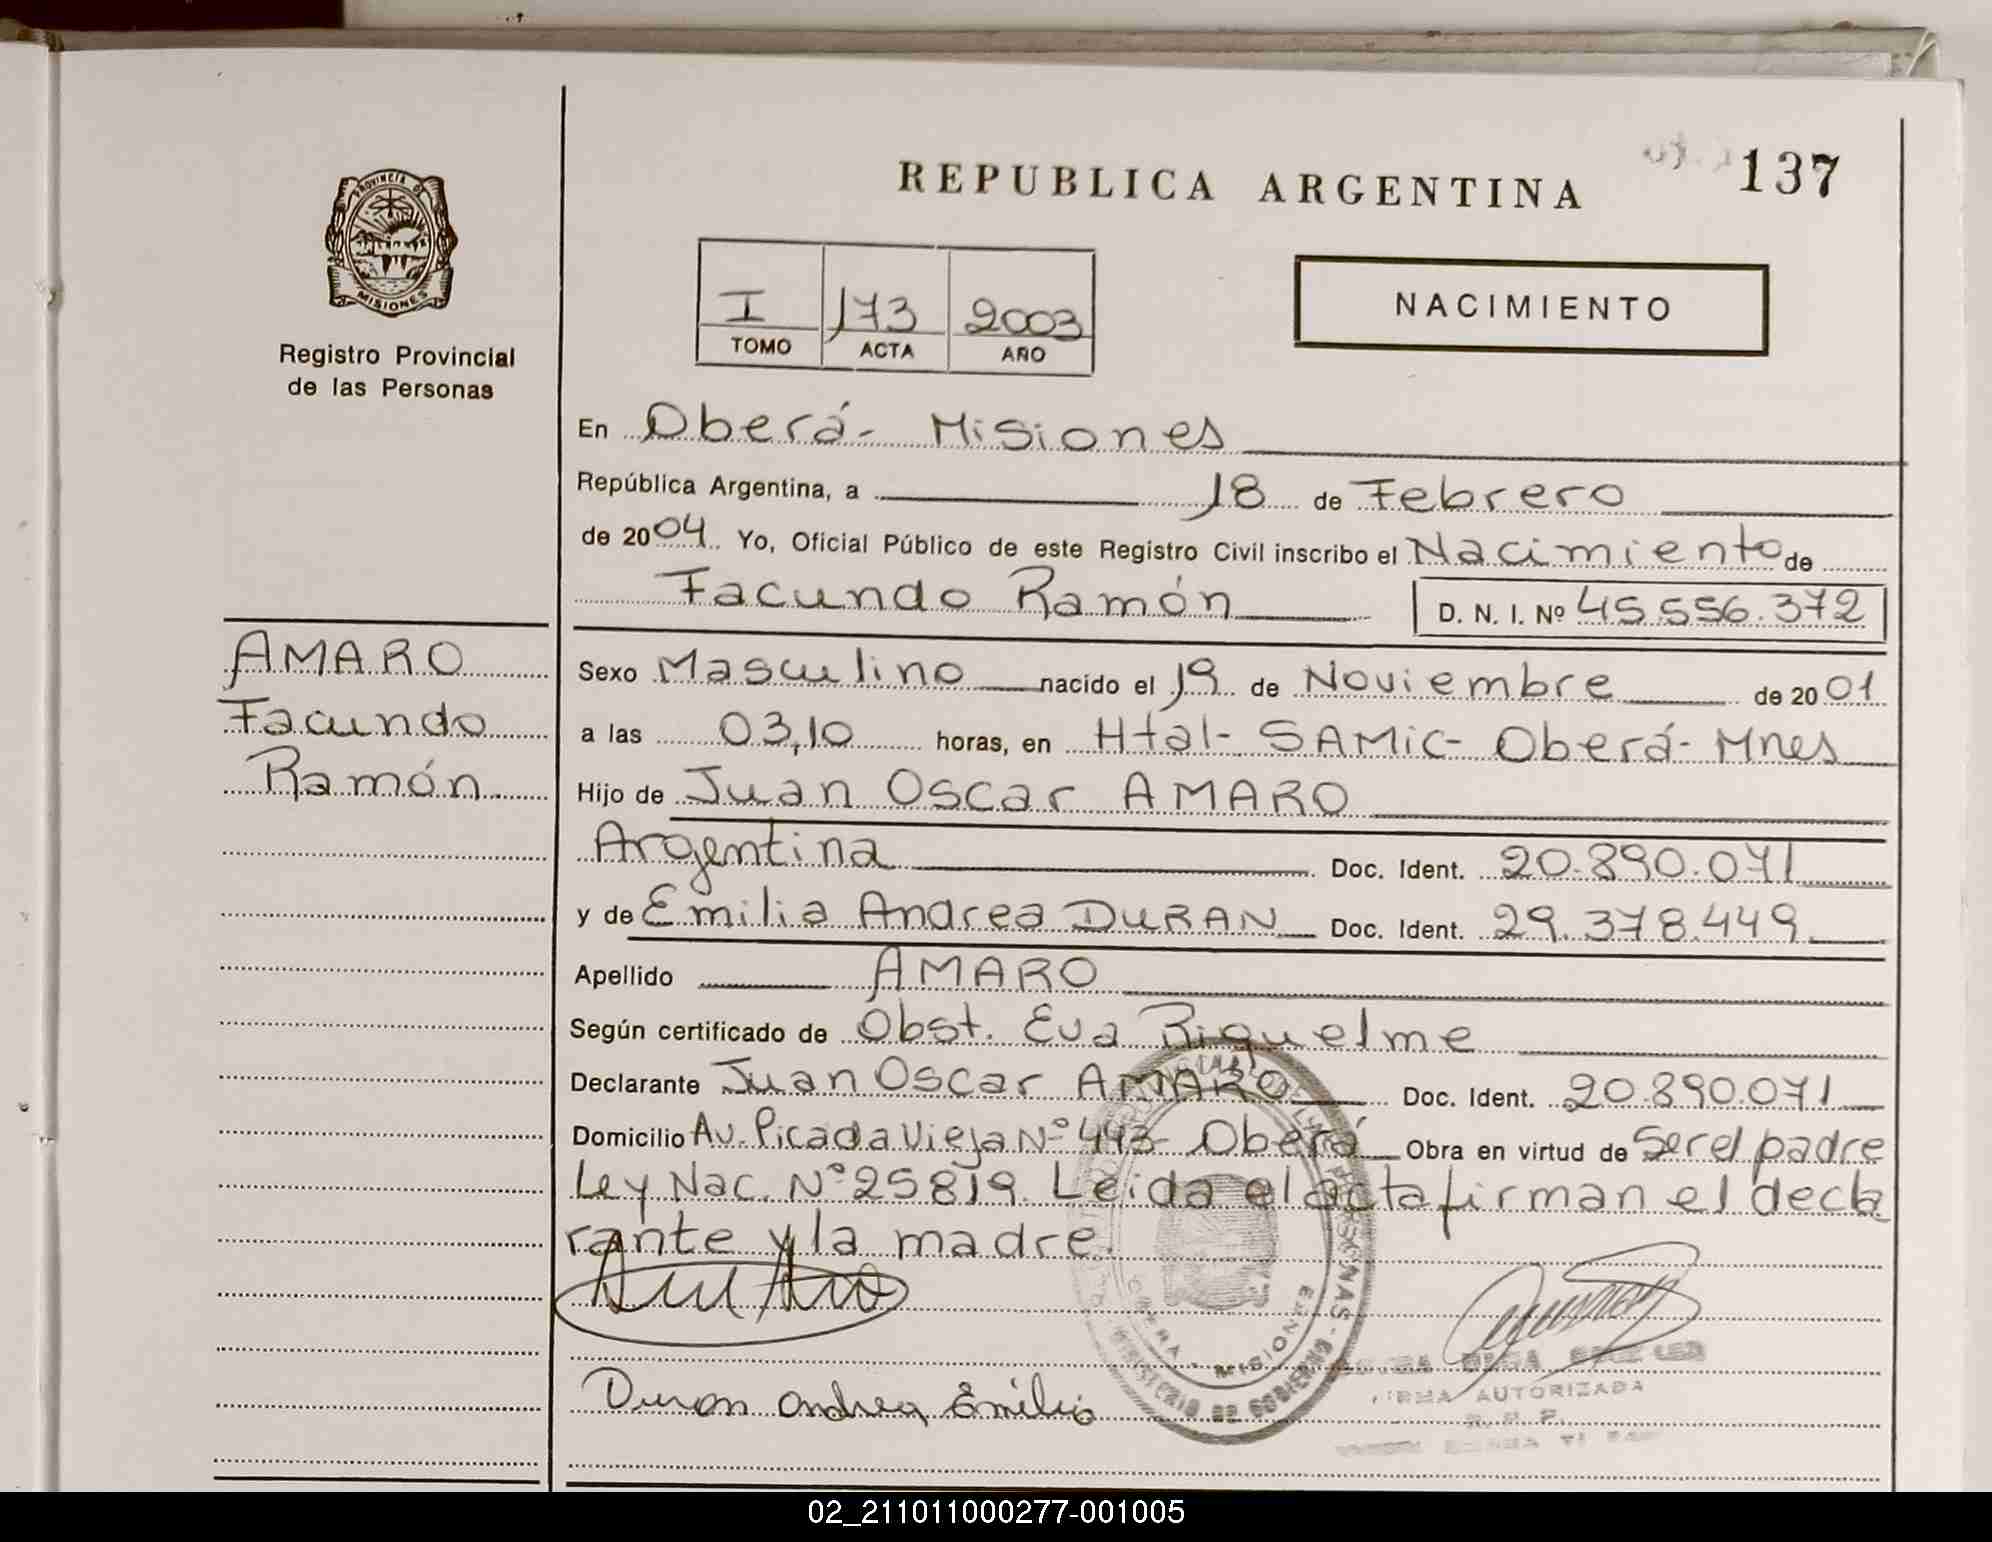 REPUBLICA ARGENTINA
137
PROVINCIA DE
MISIONES
Registro Provincial
de las Personas
I 173 2003
TOMO ACTA AÑO
NACIMIENTO
En Oberá- Misiones
República Argentina, a 18 de Febrero
de 2004 Yo, Oficial Público de este Registro Civil inscribo el Nacimiento de
Facundo Ramón D. N. I. Nº 45.556.372
AMARO
Facundo
Ramón
Sexo Masculino nacido el 19 de Noviembre de 2001
a las 03,10 horas, en Htal- SAMic- Oberá- Mnes
Hijo de Juan Oscar AMARO
Argentina Doc. Ident. 20.890.071
y de Emilia Andrea DURAN Doc. Ident. 29.378.449
Apellido AMARO
Según certificado de Obst. Eva Riquelme
Declarante Juan Oscar AMARO Doc. Ident. 20.890.071
Domicilio Av. Picada Vieja Nº 443- Oberá Obra en virtud de Ser el padre
Ley Nac. Nº 25819. Leida el acta firman el decla
rante y la madre.
Duran Andrea Emilia
PERSONAS - MINISTERIO DE GOBIERNO
OBERA - MISIONES
FIRMA AUTORIZADA
R. P. P.
02_211011000277-001005